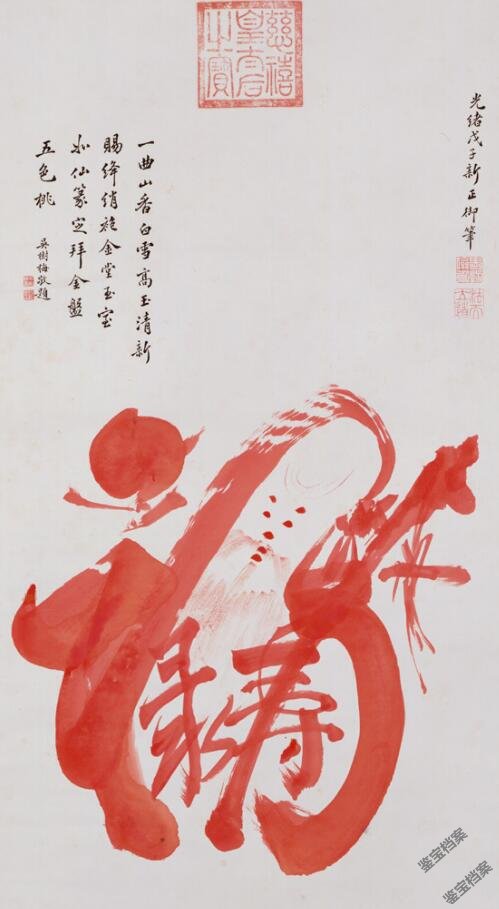 慈禧皇太后之寶
光緒戊子新正御筆
一曲山香白雪高玉清新
賜絳綃袍金堂玉室
仙篆定拜金盤
五色桃
吳樹梅敬題
禄寿
鉴宝档案
鉴宝档案